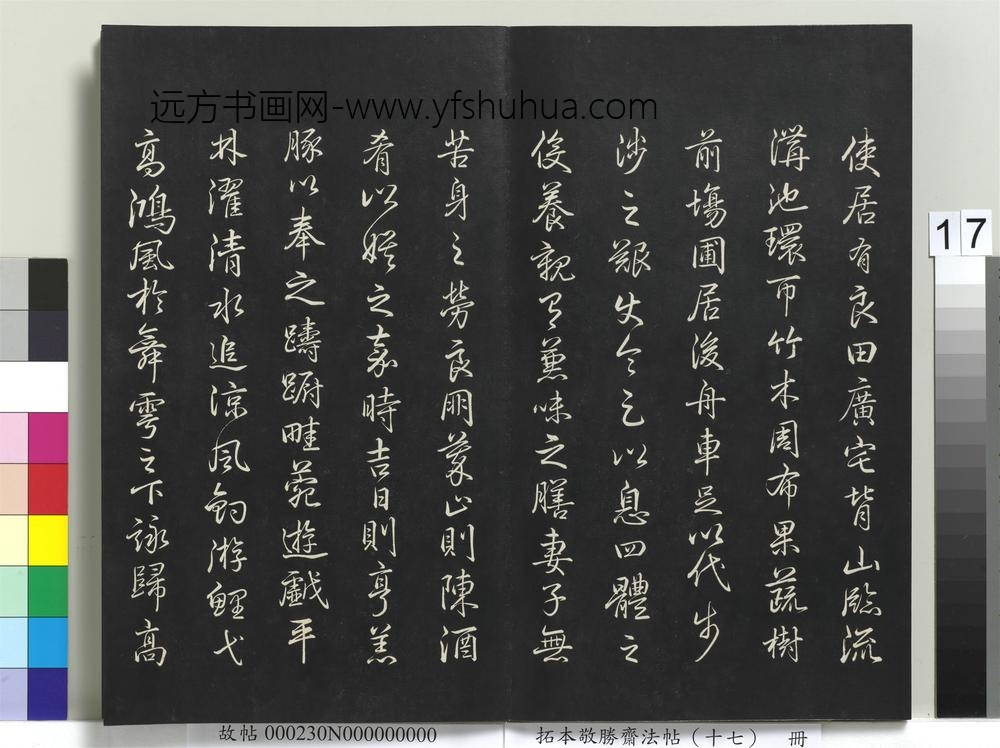 远方书画网-www.yfshuhua.com
使居有良田廣宅背山臨流
溝池環帀竹木周布果蔬樹
前場圃居後舟車足以代步
涉之艱使令足以息四體之
役養親有兼味之膳妻子無
苦身之勞良朋萃止則陳酒
肴以娛之嘉時吉日則亨羔
豚以奉之躊躕畦菀遊戲平
林濯清水追涼風釣游鯉弋
高鴻風於舞雩之下詠歸高
17
故帖 000230N000000000
拓本敬勝齋法帖（十七） 冊